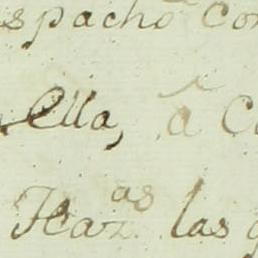 spacho con
ella, â C
Haz.as las